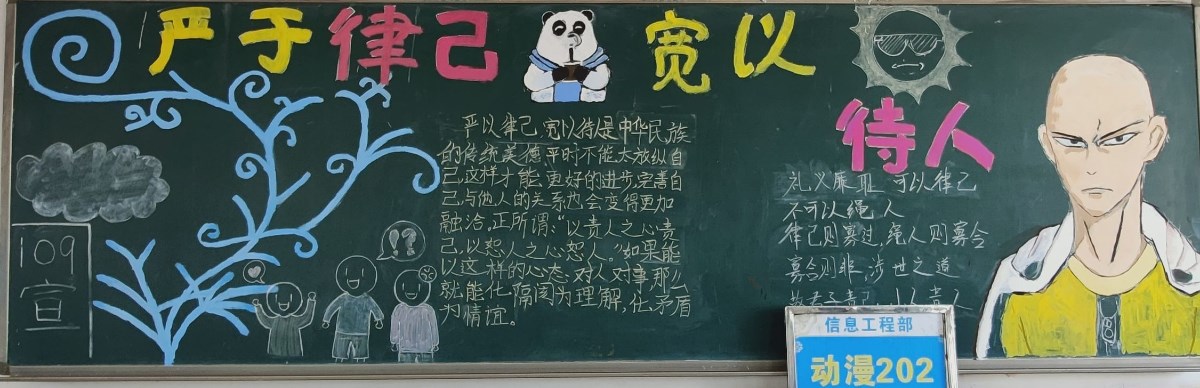 严于律己 宽以
待人
严以律己,宽以待人是中华民族
的传统美德平时不能太放纵自
己,这样才能更好的进步,完善自
己与他人的关系也会变得更加
融洽,正所谓:“以责人之心责
己,以恕人之心恕人。”如果能
以这样的心态:对人对事,那么
就能化隔阂为理解,化矛盾
为情谊。
礼义廉耻 可以律己
不可以绳人
律己则寡过,绳人则寡合
寡合则非涉世之道
责己
109
宣
!??
信息工程部
动漫202